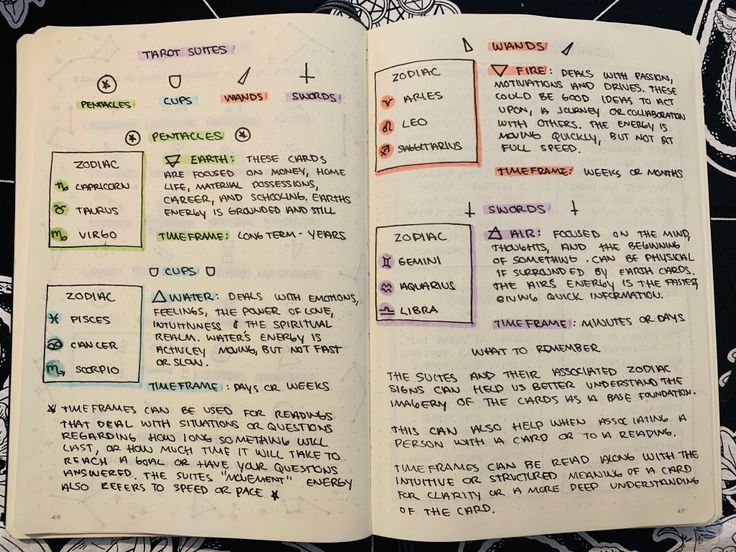 TAROT SUITES
PENTACLES CUPS WANDS SWORDS
PENTACLES
ZODIAC
CAPRICORN
TAURUS
VIRGO
EARTH: THESE CARDS
ARE FOCUSED ON MONEY, HOME
LIFE, MATERIAL POSSESSIONS,
CAREER, AND SCHOOLING. EARTHS
ENERGY IS GROUNDED AND STILL
TIMEFRAME: LONG TERM - YEARS
CUPS
ZODIAC
PISCES
CANCER
SCORPIO
WATER: DEALS WITH EMOTIONS,
FEELINGS, THE POWER OF LOVE,
INTUITIVNESS & THE SPIRITUAL
REALM. WATER'S ENERGY IS
ACTIVLEY MOVING, BUT NOT FAST
OR SLOW.
TIMEFRAME: DAYS OR WEEKS
* TIMEFRAMES CAN BE USED FOR READINGS
THAT DEAL WITH SITUATIONS OR QUESTIONS
REGARDING HOW LONG SOMETHING WILL
LAST, OR HOW MUCH TIME IT WILL TAKE TO
REACH A GOAL OR HAVE YOUR QUESTIONS
ANSWERED. THE SUITES "MOVEMENT" ENERGY
ALSO REFERS TO SPEED OR PACE *
46
WANDS
ZODIAC
ARIES
LEO
SAGGITARIUS
FIRE: DEALS WITH PASSION,
MOTIVATIONS AND DRIVES. THESE
COULD BE GOOD IDEAS TO ACT
UPON, A JOURNEY OR COLLABORATION
WITH OTHERS. THE ENERGY IS
MOVING QUICKLY, BUT NOT AT
FULL SPEED.
TIMEFRAME: WEEKS OR MONTHS
SWORDS
ZODIAC
GEMINI
AQUARIUS
LIBRA
AIR: FOCUSED ON THE MIND,
THOUGHTS, AND THE BEGINNING
OF SOMETHING. CAN BE PHYSICAL
IF SURROUNDED BY EARTH CARDS.
THE AIRS ENERGY IS THE FASTEST,
GIVING QUICK INFORMATION.
TIMEFRAME: MINUTES OR DAYS
WHAT TO REMEMBER
THE SUITES AND THEIR ASSOCIATED ZODIAC
SIGNS CAN HELP US BETTER UNDERSTAND THE
IMAGERY OF THE CARDS AS A BASE FOUNDATION.
THIS CAN ALSO HELP WHEN ASSOCIATING A
PERSON WITH A CARD OR TO A READING.
TIMEFRAMES CAN BE READ ALONG WITH THE
INTUITIVE OR STRUCTURED MEANING OF A CARD
FOR CLARITY OR A MORE DEEP UNDERSTANDING
OF THE CARD.
47